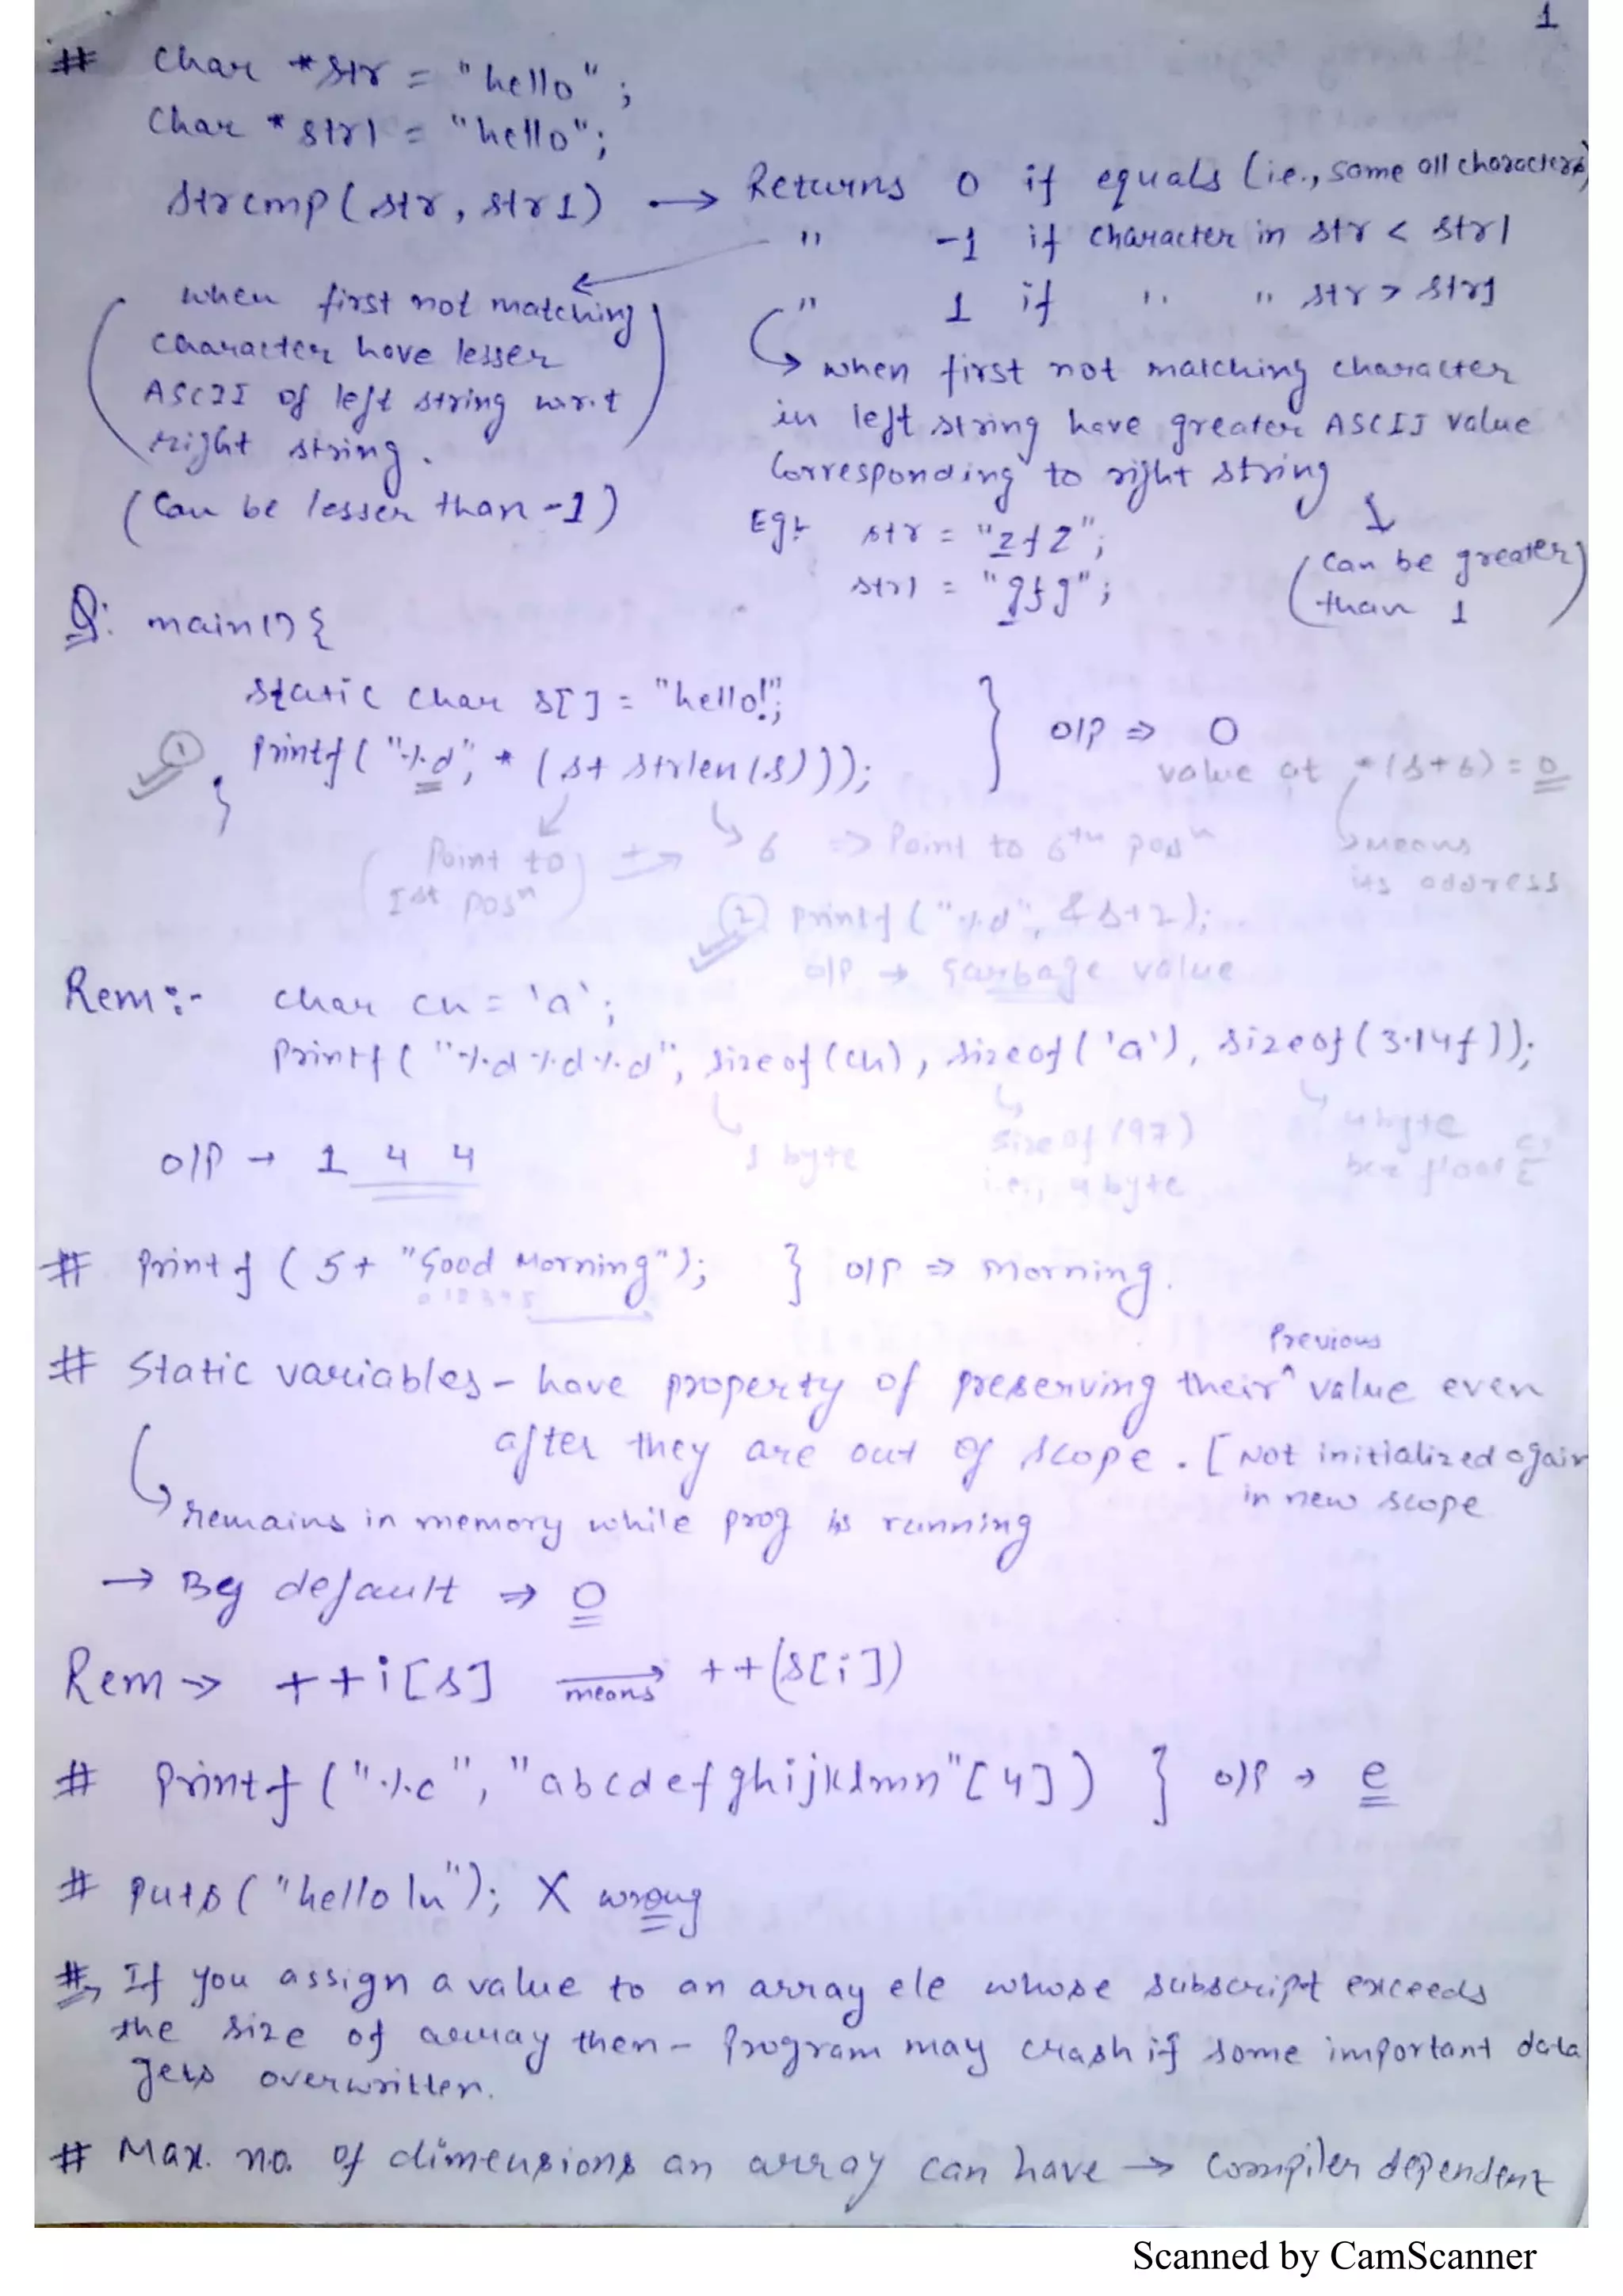 1
# char *str = "hello";
char *str1 = "hello";
strcmp(str, str1) → Returns 0 if equals (i.e., same all characters)
" -1 if character in str < str1
" 1 if " " str > str1
(when first not matching
character have lesser
ASCII of left string w.r.t
right string.)
(can be lesser than -1)
↳ when first not matching character
in left string have greater ASCII value
corresponding to right string
(can be greater
than 1)
Eg:- str = "zfz";
str1 = "gfg";
Q: main() {
static char s[] = "hello!";
① printf("%d", *(s+strlen(s)));
}
} o/p ⇒ 0
value at *(s+6) = 0
↳ means
its address
(Point to
Ist posn) + → 6 ⇒ Point to 6th posn
② printf("%d", &s+2);
o/p → garbage value
Rem:- char ch = 'a';
printf("%d %d %d", sizeof(ch), sizeof('a'), sizeof(3.14f));
↳ 1 byte
↳ sizeof(97)
i.e., 4 byte
↳ 4 byte
for float
o/p → 1 4 4
# printf(5+ "Good Morning"); } o/p ⇒ morning.
0 1 2 3 4 5
# Static variables - have property of preserving their ^ Previous value even
after they are out of scope. [Not initialized again
in new scope
↳ remains in memory while prog is running
→ By default ⇒ 0
Rem → ++i[s] means → ++(s[i])
# printf("%c", "abcdefghijklmn"[4]) } o/p → e
# puts("hello\n"); X wrong
#, If you assign a value to an array ele whose subscript exceeds
the size of array then - Program may crash if some important data
gets overwritten.
# Max. no. of dimensions an array can have → compiler dependent
Scanned by CamScanner